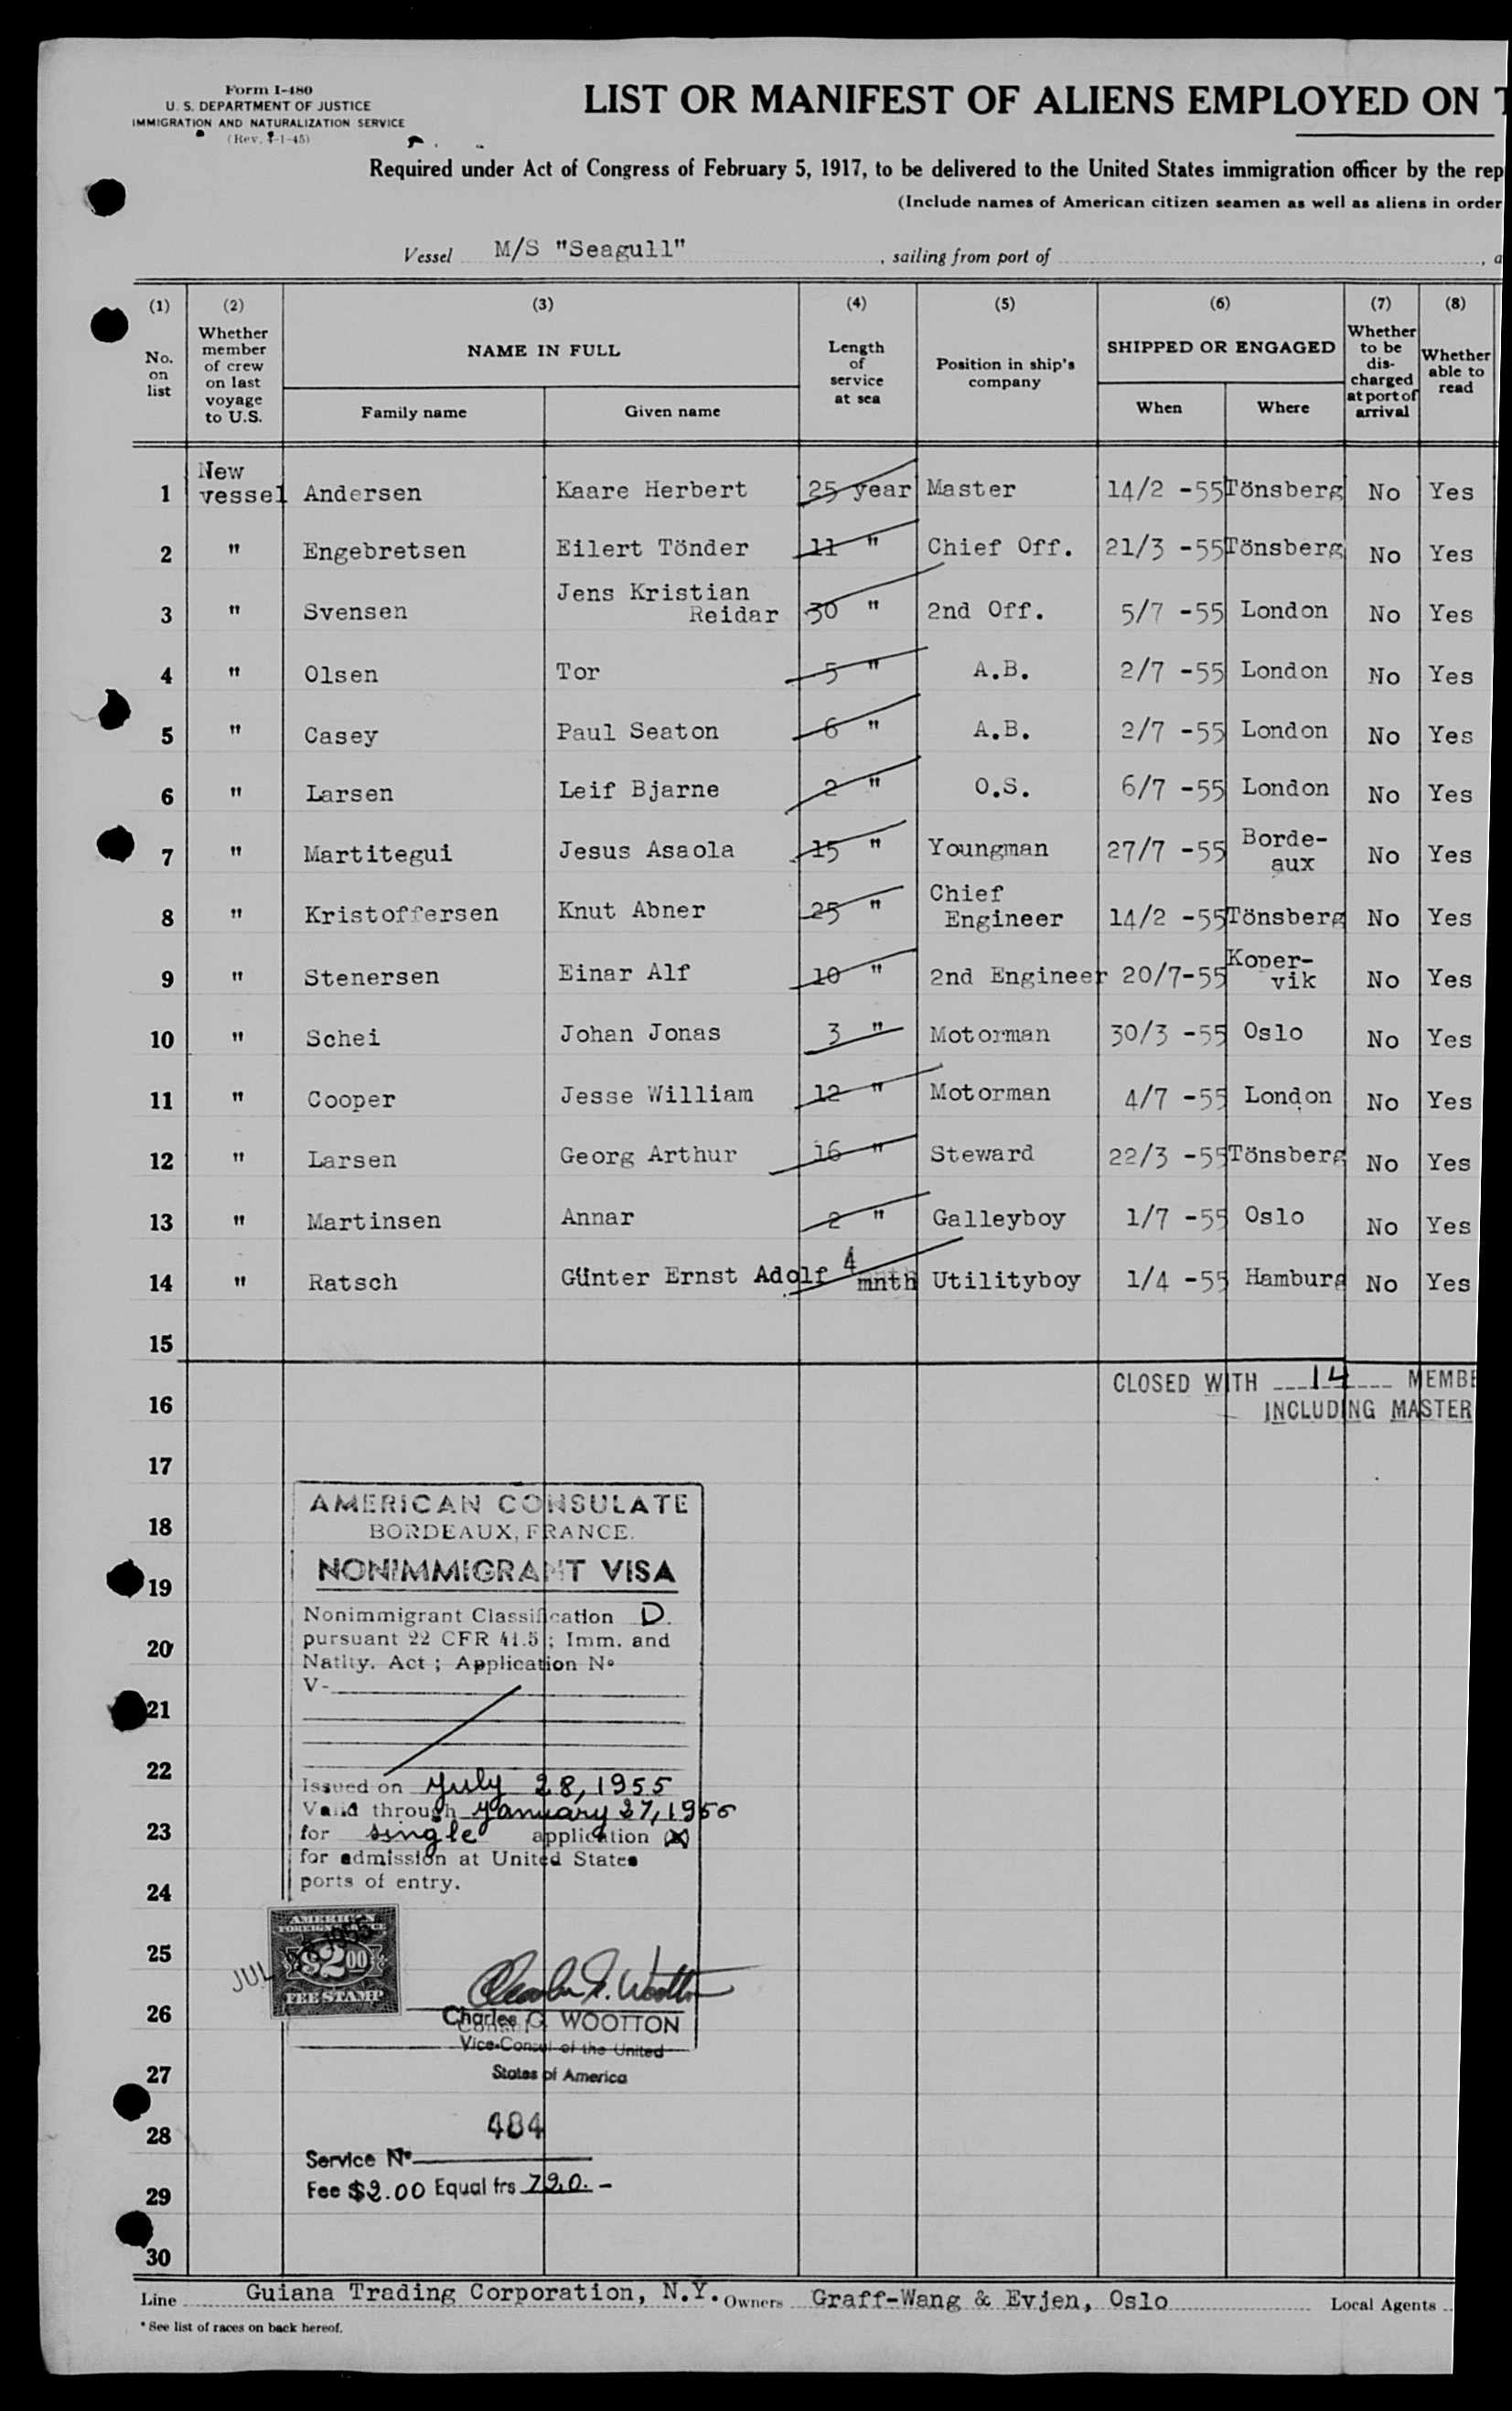 Form I-480
U. S. DEPARTMENT OF JUSTICE
IMMIGRATION AND NATURALIZATION SERVICE
(Rev. -1-45)
LIST OR MANIFEST OF ALIENS EMPLOYED ON T
Required under Act of Congress of February 5, 1917, to be delivered to the United States immigration officer by the rep
(Include names of American citizen seamen as well as aliens in order
Vessel M/S "Seagull" , sailing from port of , a
(1) (2) (3) (4) (5) (6) (7) (8)
No. on list
Whether member of crew on last voyage to U.S.
NAME IN FULL
Family name
Given name
Length of service at sea
Position in ship's company
SHIPPED OR ENGAGED
When
Where
Whether to be dis-charged at port of arrival
Whether able to read
1 New vessel Andersen Kaare Herbert 25 year Master 14/2 -55 Tönsberg No Yes
2 " Engebretsen Eilert Tönder 11 " Chief Off. 21/3 -55 Tönsberg No Yes
3 " Svensen Jens Kristian Reidar 30 " 2nd Off. 5/7 -55 London No Yes
4 " Olsen Tor 5 " A.B. 2/7 -55 London No Yes
5 " Casey Paul Seaton 6 " A.B. 2/7 -55 London No Yes
6 " Larsen Leif Bjarne 2 " O.S. 6/7 -55 London No Yes
7 " Martitegui Jesus Asaola 15 " Youngman 27/7 -55 Borde-aux No Yes
8 " Kristoffersen Knut Abner 25 " Chief Engineer 14/2 -55 Tönsberg No Yes
9 " Stenersen Einar Alf 10 " 2nd Engineer 20/7-55 Koper-vik No Yes
10 " Schei Johan Jonas 3 " Motorman 30/3 -55 Oslo No Yes
11 " Cooper Jesse William 12 " Motorman 4/7 -55 London No Yes
12 " Larsen Georg Arthur 16 " Steward 22/3 -55 Tönsberg No Yes
13 " Martinsen Annar 2 " Galleyboy 1/7 -55 Oslo No Yes
14 " Ratsch Günter Ernst Adolf 4 mnth Utilityboy 1/4 -55 Hamburg No Yes
15
CLOSED WITH 14 MEMBE
16
INCLUDING MASTER
17
AMERICAN CONSULATE
18
BORDEAUX, FRANCE.
NONIMMIGRANT VISA
19
Nonimmigrant Classification D.
pursuant 22 CFR 41.5 ; Imm. and
20
Natlty. Act ; Application No
V-
21
22
Issued on July 28, 1955
Valid through January 27, 1956
23
for single application
for admission at United States
24
ports of entry.
AMERICAN
FOREIGN SERVICE
25
$2.00
JUL 28 1955
FEE STAMP
26
Charles G. WOOTTON
Vice-Consul of the United
27
States of America
484
28
Service No
29
Fee $2.00 Equal frs 720.-
30
Line Guiana Trading Corporation, N.Y. Owners Graff-Wang & Evjen, Oslo Local Agents
* See list of races on back hereof.